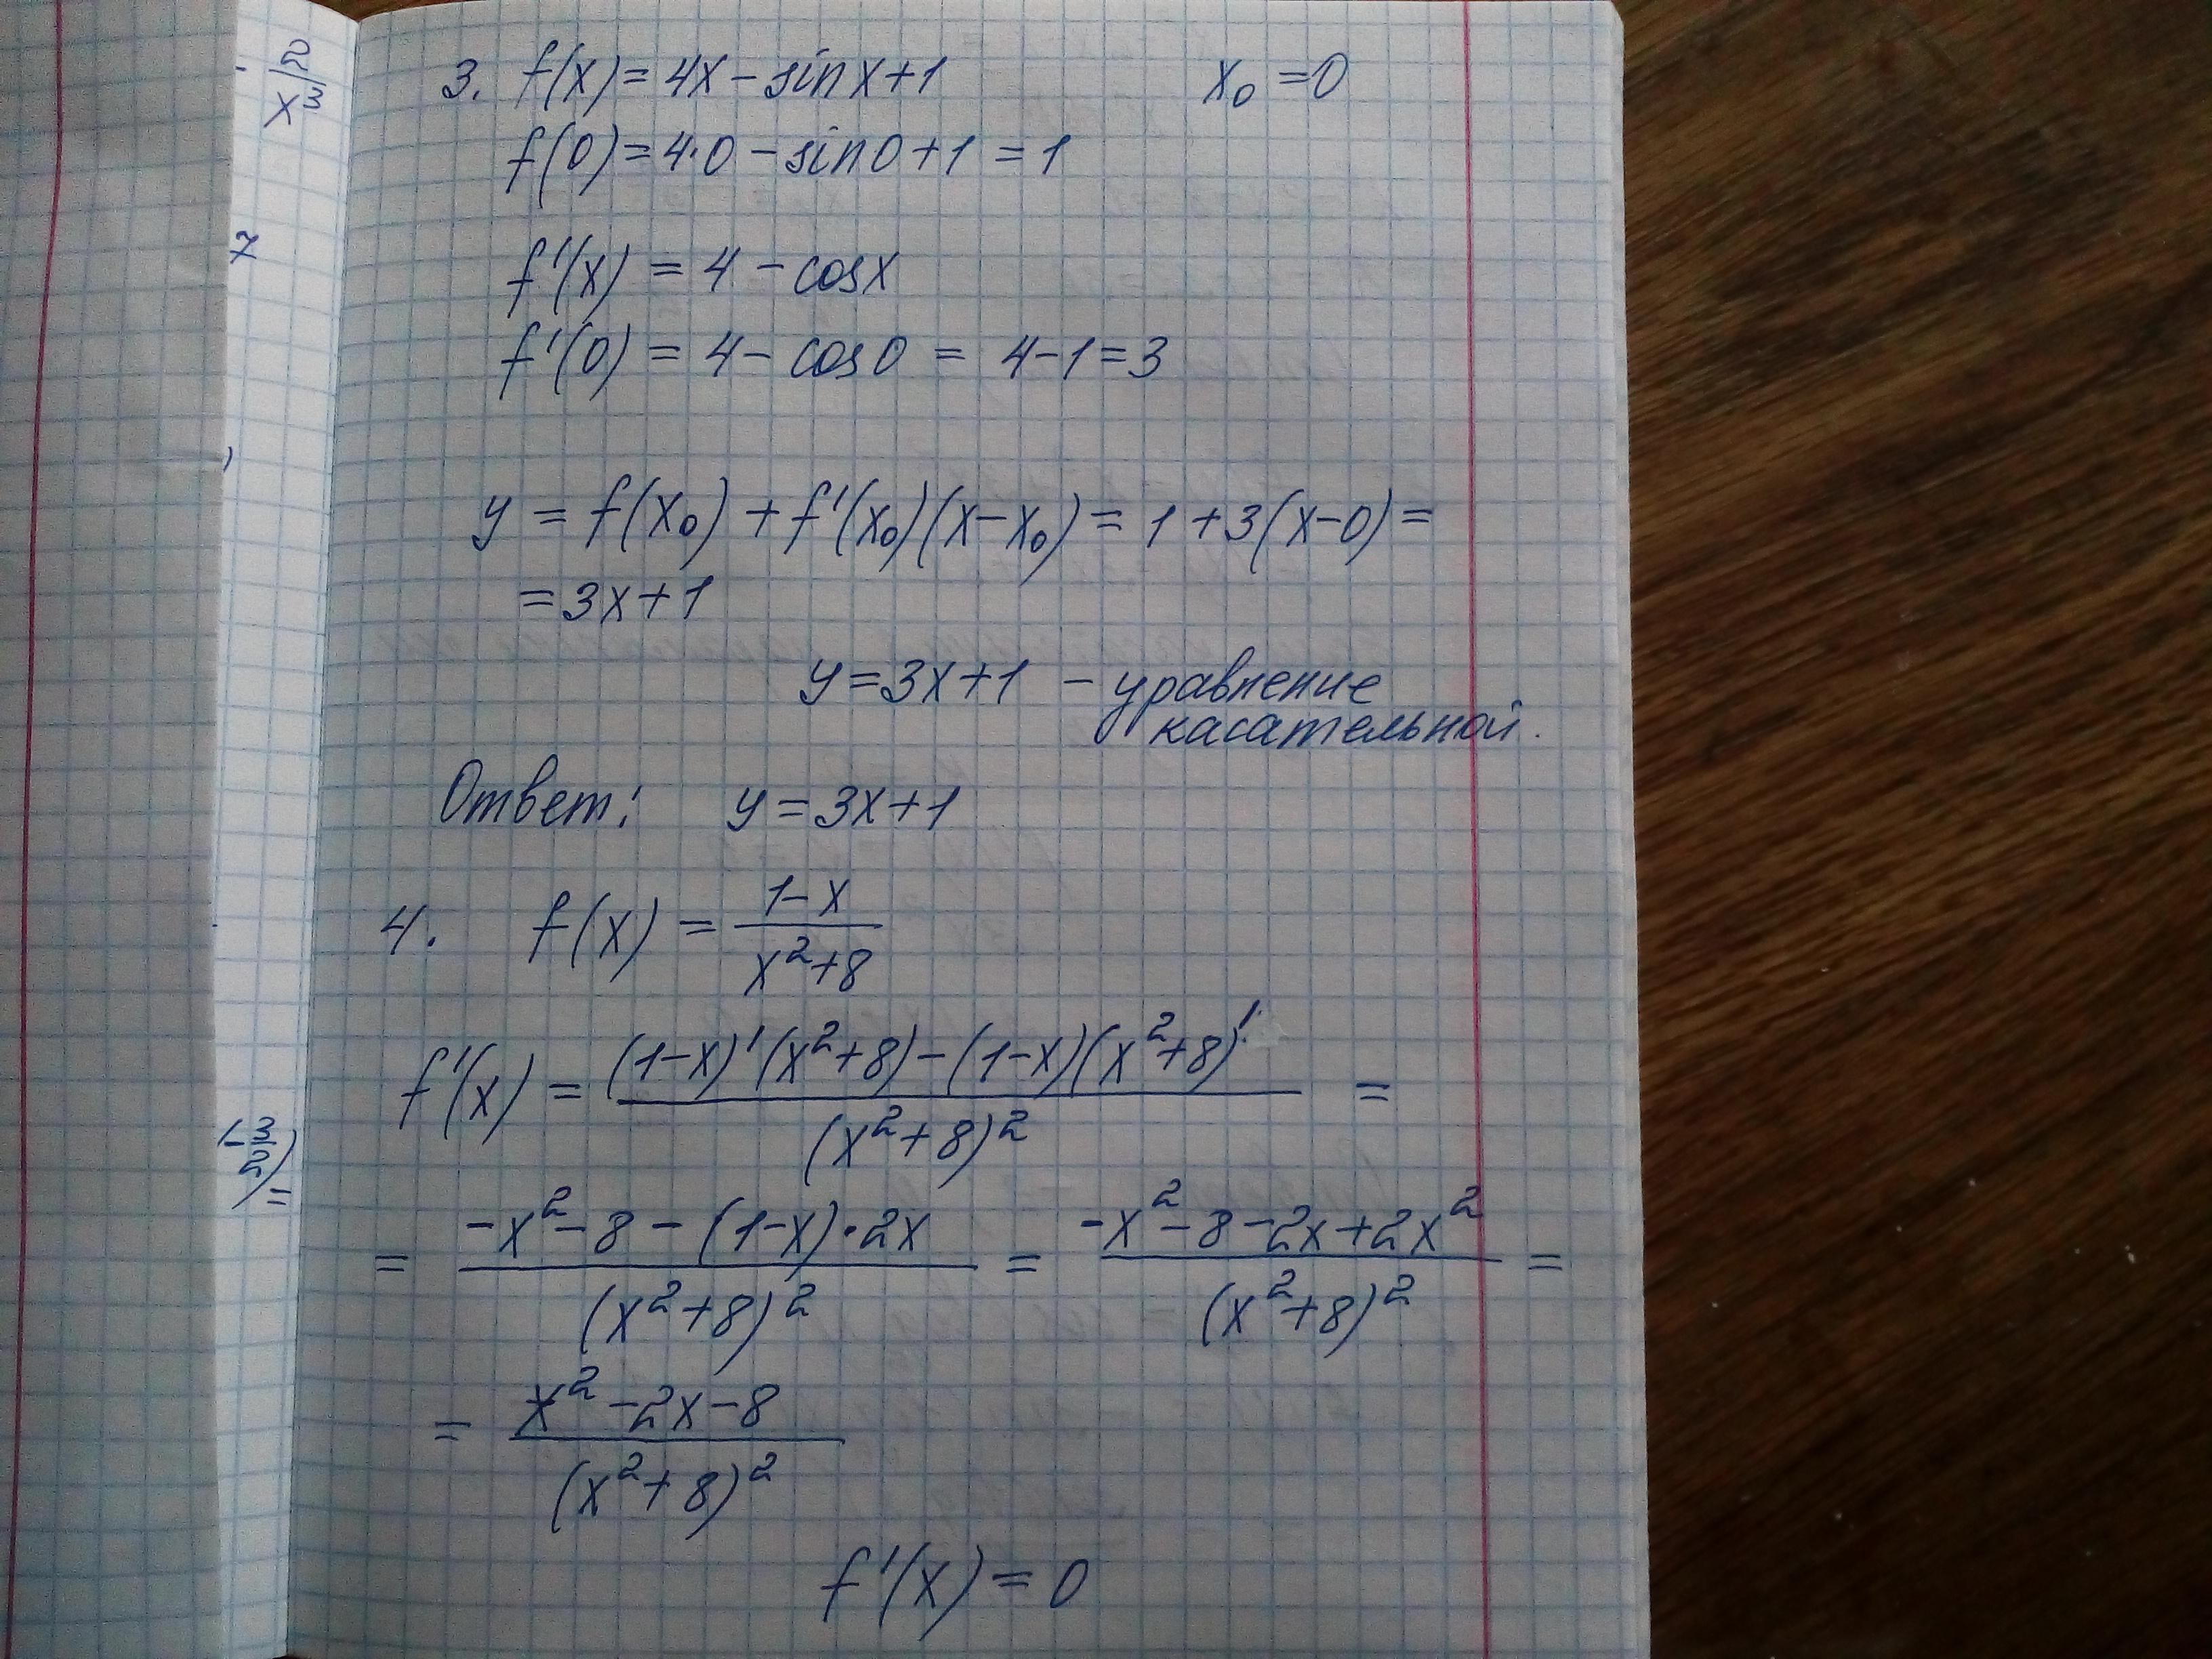 3. f(x) = 4x - sin x + 1    x₀ = 0
f(0) = 4·0 - sin 0 + 1 = 1
f'(x) = 4 - cos x
f'(0) = 4 - cos 0 = 4 - 1 = 3
y = f(x₀) + f'(x₀)(x - x₀) = 1 + 3(x - 0) =
= 3x + 1
y = 3x + 1 - уравнение
касательной.
Ответ: y = 3x + 1
4. f(x) = (1 - x)/(x² + 8)
f'(x) = ((1 - x)'(x² + 8) - (1 - x)(x² + 8)')/(x² + 8)² =
= (-x² - 8 - (1 - x)·2x)/(x² + 8)² = (-x² - 8 - 2x + 2x²)/(x² + 8)² =
= (x² - 2x - 8)/(x² + 8)²
f'(x) = 0
7
(-3/2) =